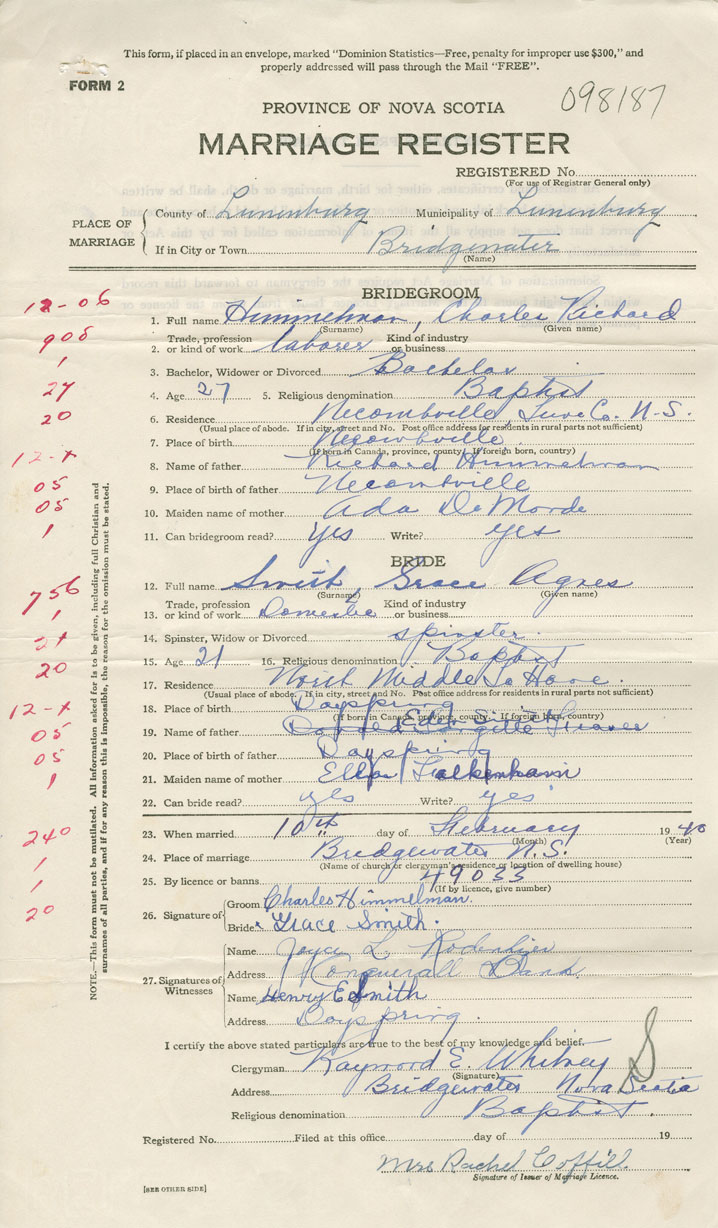 This form, if placed in an envelope, marked "Dominion Statistics—Free, penalty for improper use $300," and
properly addressed will pass through the Mail "FREE".
FORM 2
PROVINCE OF NOVA SCOTIA
098187
MARRIAGE REGISTER
REGISTERED No.
(For use of Registrar General only)
PLACE OF MARRIAGE
County of Lunenburg Municipality of Lunenburg
If in City or Town Bridgewater
(Name)
BRIDEGROOM
12-06
1. Full name Himmelman, Charles Richard
(Surname) (Given name)
908
Trade, profession Kind of industry
2. or kind of work laborer or business
1
3. Bachelor, Widower or Divorced Bachelor
27
4. Age 27 5. Religious denomination Baptist
20
6. Residence Necombville, Lune Co. N.S.
(Usual place of abode. If in city, street and No. Post office address for residents in rural parts not sufficient)
7. Place of birth
(If born in Canada, province, county. If foreign born, country)
12-x
8. Name of father Richard Himmelman
05
9. Place of birth of father Necombville
05
10. Maiden name of mother Ada DeMorde
1
11. Can bridegroom read? Yes Write? yes
BRIDE
12. Full name Smith, Grace Agnes
(Surname) (Given name)
756
Trade, profession Kind of industry
13. or kind of work Domestic or business
1
14. Spinster, Widow or Divorced spinster.
21
15. Age 21 16. Religious denomination Baptist
20
17. Residence North Middle La Have.
(Usual place of abode. If in city, street and No. Post office address for residents in rural parts not sufficient)
12-x
18. Place of birth Dayspring
(If born in Canada, province, county. If foreign born, country)
05
19. Name of father
05
20. Place of birth of father Dayspring
1
21. Maiden name of mother Ella Falkenham
22. Can bride read? yes Write? yes
240
23. When married 10th day of February 1940
(Month) (Year)
1
24. Place of marriage Bridgewater N.S.
(Name of church or clergyman's residence or location of dwelling house)
1
25. By licence or banns 49033
(If by licence, give number)
20
26. Signature of
Groom Charles Himmelman.
Bride Grace Smith.
27. Signatures of Witnesses
Name L.
Address Conquerall Bank
Name Henry E Smith
Address Dayspring.
I certify the above stated particulars are true to the best of my knowledge and belief.
Clergyman Raymond E. Whitney
(Signature)
Address Bridgewater Nova Scotia
Religious denomination Baptist.
Registered No. Filed at this office day of 19
Mrs Rachel Coffill
Signature of Issuer of Marriage Licence.
[SEE OTHER SIDE]
NOTE.—This form must not be mutilated. All information asked for is to be given, including full Christian and
surnames of all parties, and if for any reason this is impossible, the reason for the omission must be stated.